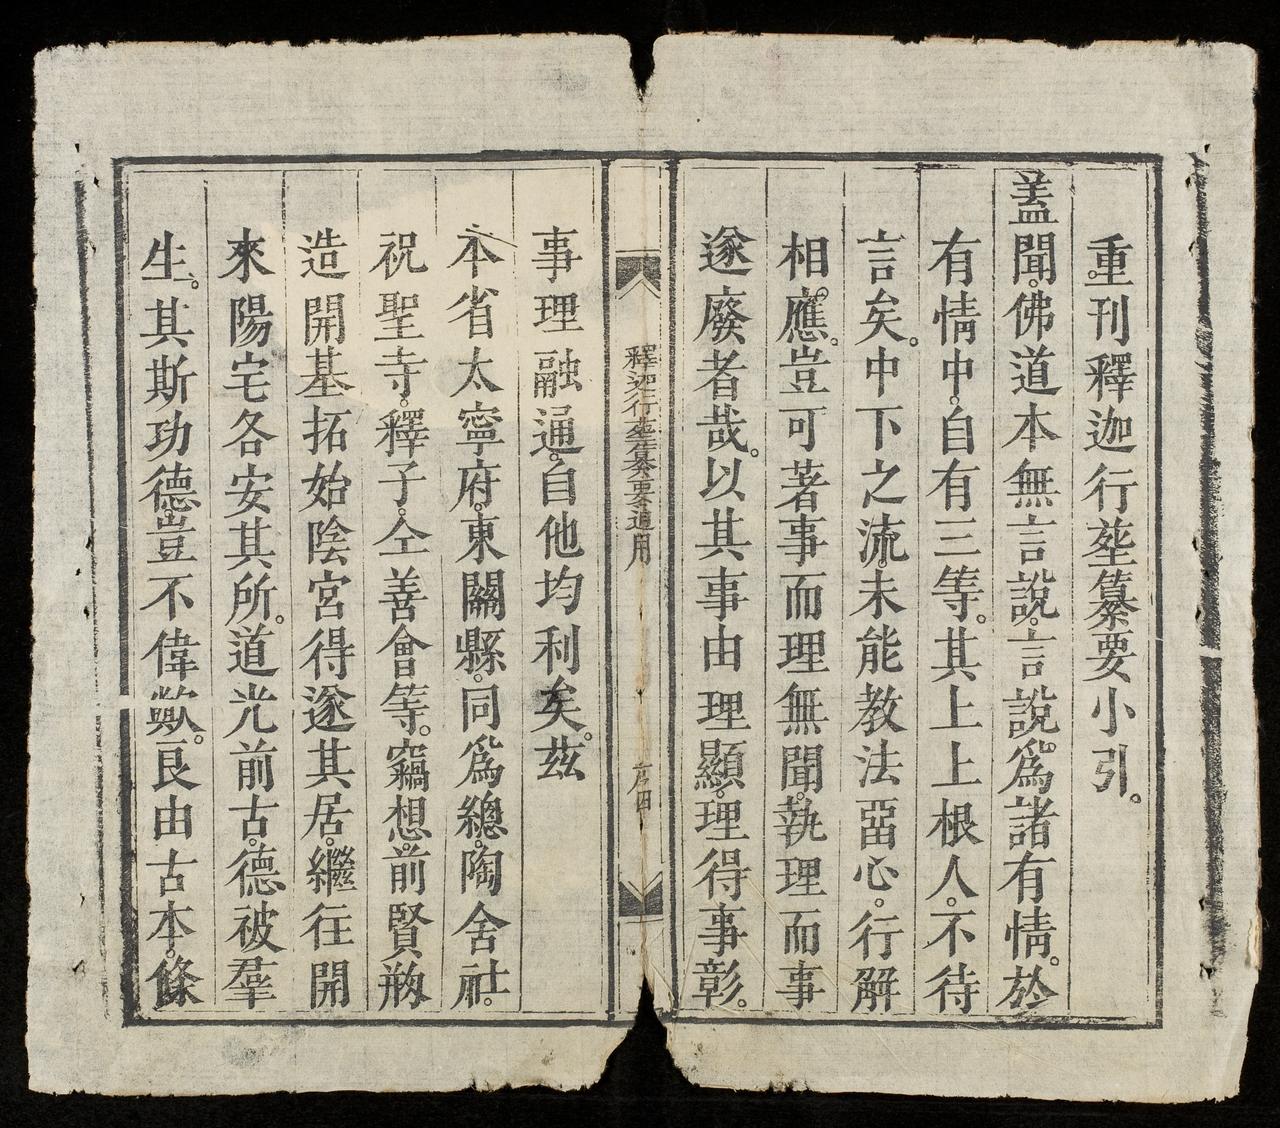 重刊釋迦行塟纂要小引。
蓋聞。佛道本無言說。言說爲諸有情。於
有情中。自有三等。其上上根人。不待
言矣。中下之流。未能教法啚心。行解
相應。豈可著事而理無聞。執理而事
遂廢者哉。以其事由理顯。理得事彰。
釋迦行塟纂要通用
序四
事理融通。自他均利矣。茲
本省太寧府。東關縣。同爲總。陶舍社。
祝聖寺。釋子。仝善會等。竊想。前賢刱
造開基拓始陰宮得遂其居。繼往開
來陽宅各安其所。道光前古。德被羣
生。其斯功德。豈不偉歟。良由古本。條